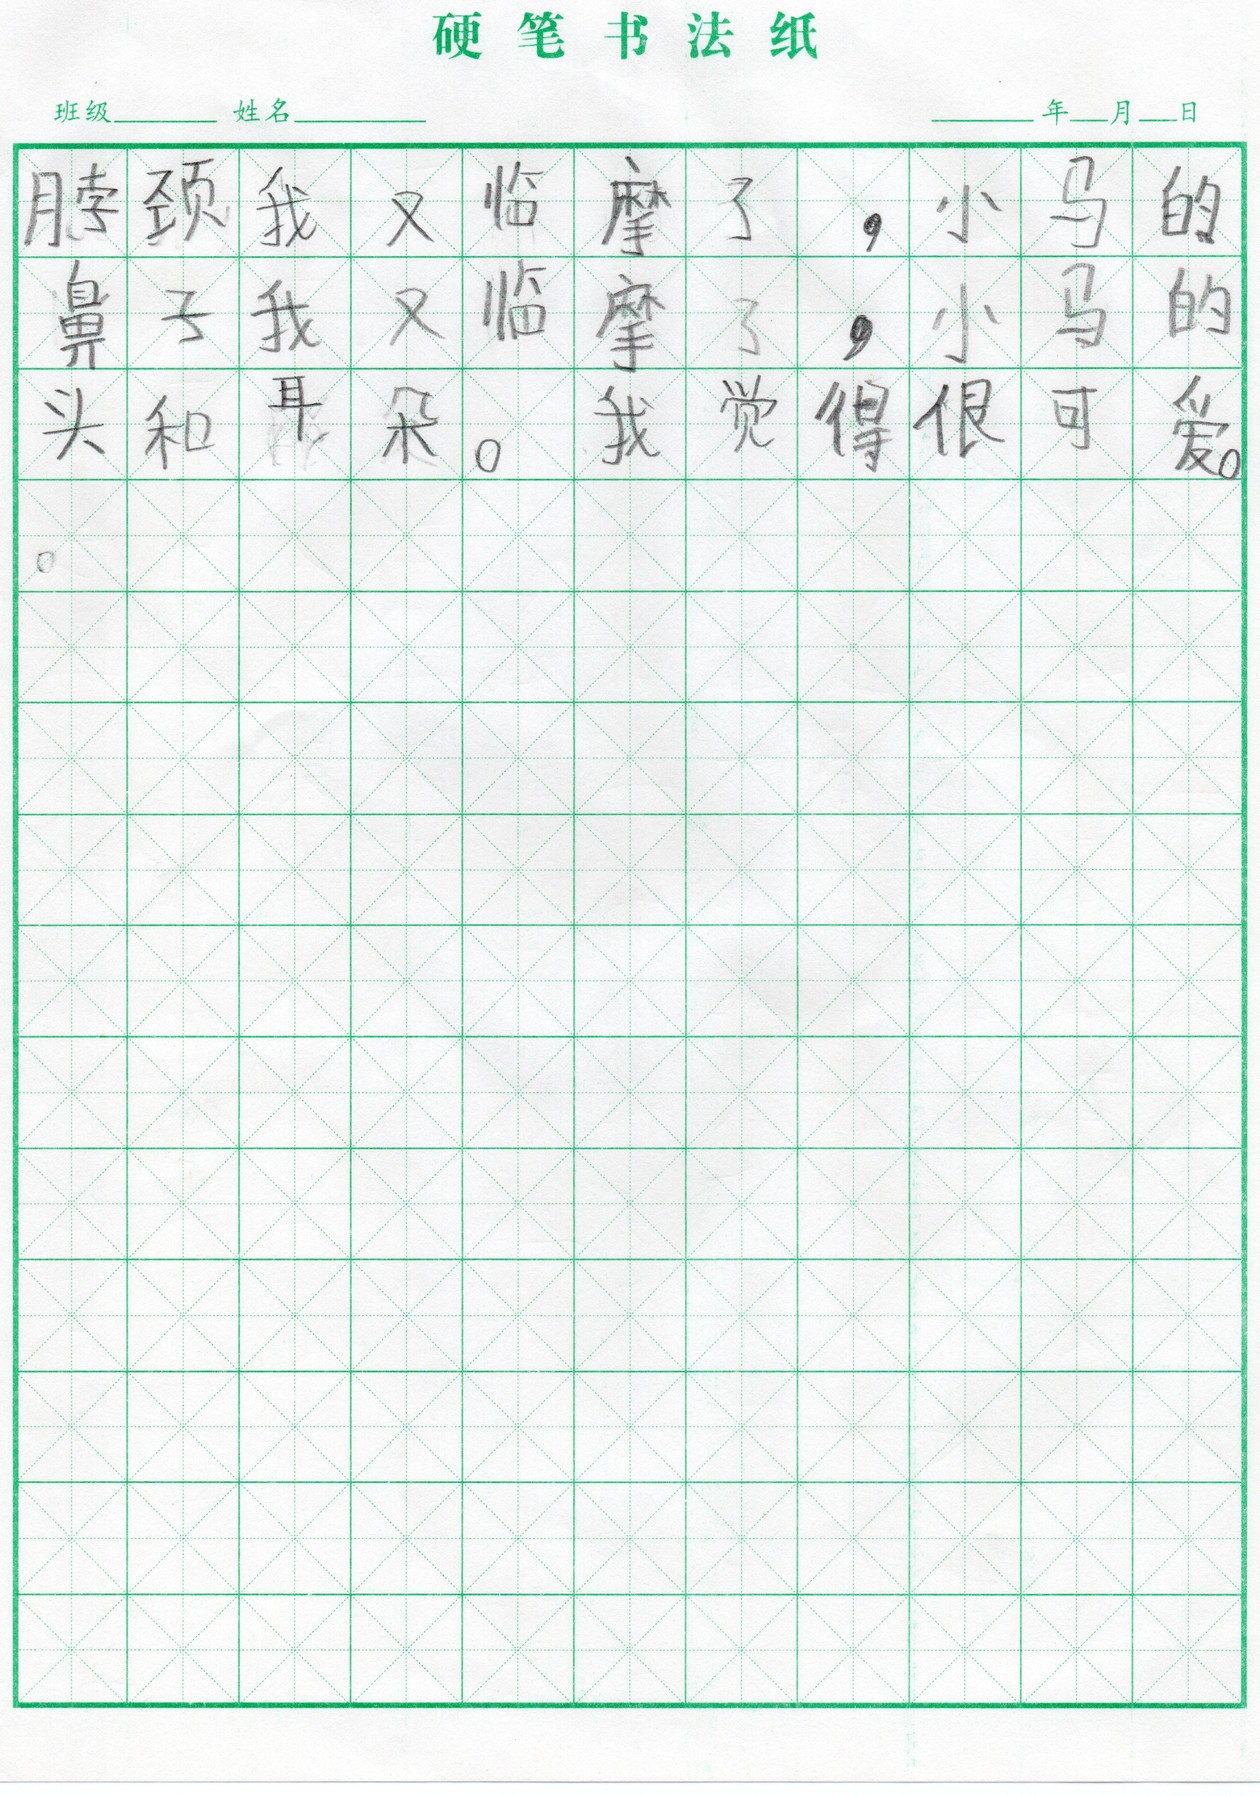 硬笔书法纸
班级 姓名 年 月 日
脖颈我又临摩了,小马的
鼻子我又临摩了,小马的
头和耳朵。我觉得很可爱。
。